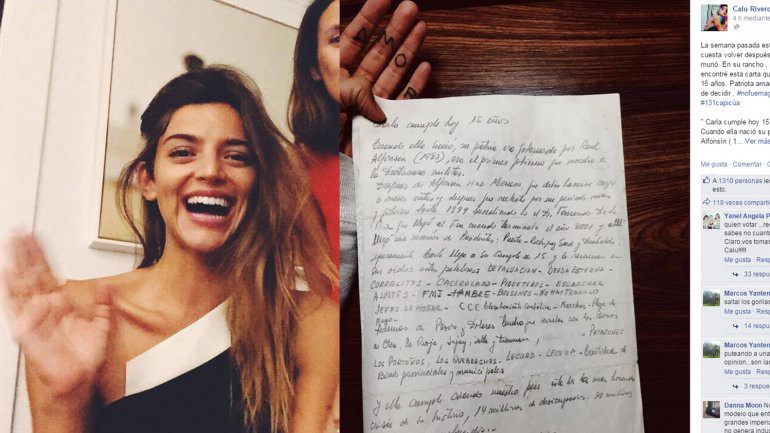 AMOR
Carla cumple hoy 15 años
Cuando ella nació, su patria era gobernada por Raúl
Alfonsín (1983), era el primer gobierno que sucedía a
la Dictadura militar.
Después de Alfonsín vino Menem que debió hacerse cargo
y gobierna hasta 1999 sucediendo lo el Dr. Fernando De la
Rúa que llegó al fin cuando terminaba el año 2001 y allí
llegó una sucesión de Presidentes: Puerta - Rodríguez Saá y Duhalde.
Carla llega a su cumple de 15 y le resuenan en
sus oídos estas palabras DEVALUACION - DEUDA EXTERNA -
CORRALITOS - CACEROLAZO - PIQUETEROS - ESCRACHE
AJUSTES - FMI - HAMBRE - BOLSONES - NO HAY TRABAJO
JEFES DE HOGAR - CCC - Marchas - Plaza de
Mayo -
Además de
el Che, la Rioja, Jujuy, Salta, Tucumán, PATRONES
LOS PORTEÑOS, LOS - LECOR - LECOP -
Bonos provinciales y municipales
Y ella cumple cuando nuestro país está en la mas tremenda
crisis de su historia, 14 millones de desocupados, 20 millones
Calu Rivero
4 h mediante
La semana pasada est
cuesta volver después
murió. En su rancho ,
encontré esta carta qu
15 años. Patriota ama
de decidir . #nofuemag
#131capicúa
" Carla cumple hoy 15
Cuando ella nació su p
Alfonsín ( 1... Ver más
Me gusta · Comentar · C
A 1310 personas les
esto.
119 veces comparti
Yanel Angela P
quien votar ...reg
sabes no cuant
Claro,vos tomas
Calu!!!!!
Me gusta · Resp
33 respue
Marcos Yanten
saltal los gorilas
Me gusta · Resp
14 respue
Marcos Yanten
puteando a una
opinion...son lan
Me gusta · Resp
3 respues
Danna Moon No
modelo que entr
grandes imperia
no genera indus